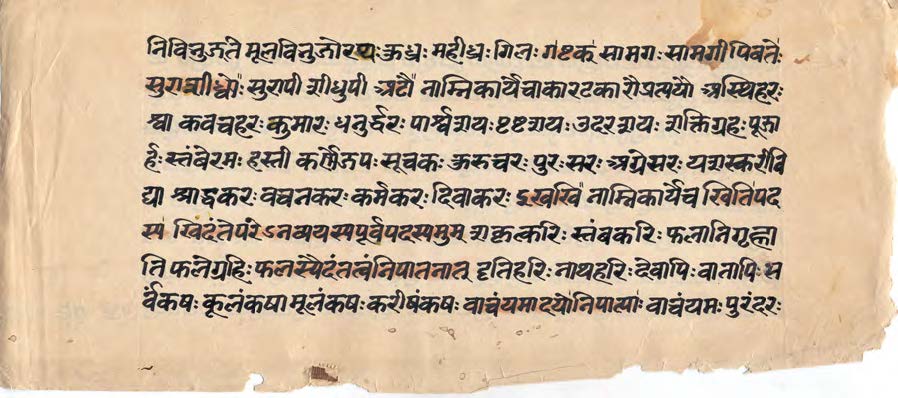 तिविनुजति मूलविनुजोरथः कुध्रः महीध्रः गिलः गष्टक् सामगः सामगी पिबतेः
सुराशीध्वोः सुरापी शीधुपी अटौ नाम्निकार्येचाकारटकारौप्रत्ययौ अस्थिहरः
श्वा कवचहरः कुमारः धनुर्द्धरः पार्श्वशयः पृष्टशयः उदरशयः शक्तिग्रहः पूजा
र्हः स्तंबेरमः हस्ती कर्णेजपः सूचकः कुरुचरः पुरःसरः अग्रेसरः यशस्करीवि
द्या श्राद्धकरः वचनकरः कर्मकरः दिवाकरः इखखि नाम्निकार्येच खितिपद
स्य खिदंतेपरेऽनव्ययस्यपूर्वपदस्यमुम् शकृत्करिः स्तंबकरिः फलानिगृह्णा
ति फलेग्रहिः फलस्यैदंतत्वंनिपातनात् दृतिहरिः नाथहरिः देवापिः वातापिः स
र्वंकषः कूलंकषा मूलंकषः करीषंकषः वाचंयमादयोनिपात्याः वाचंयमः पुरंदरः